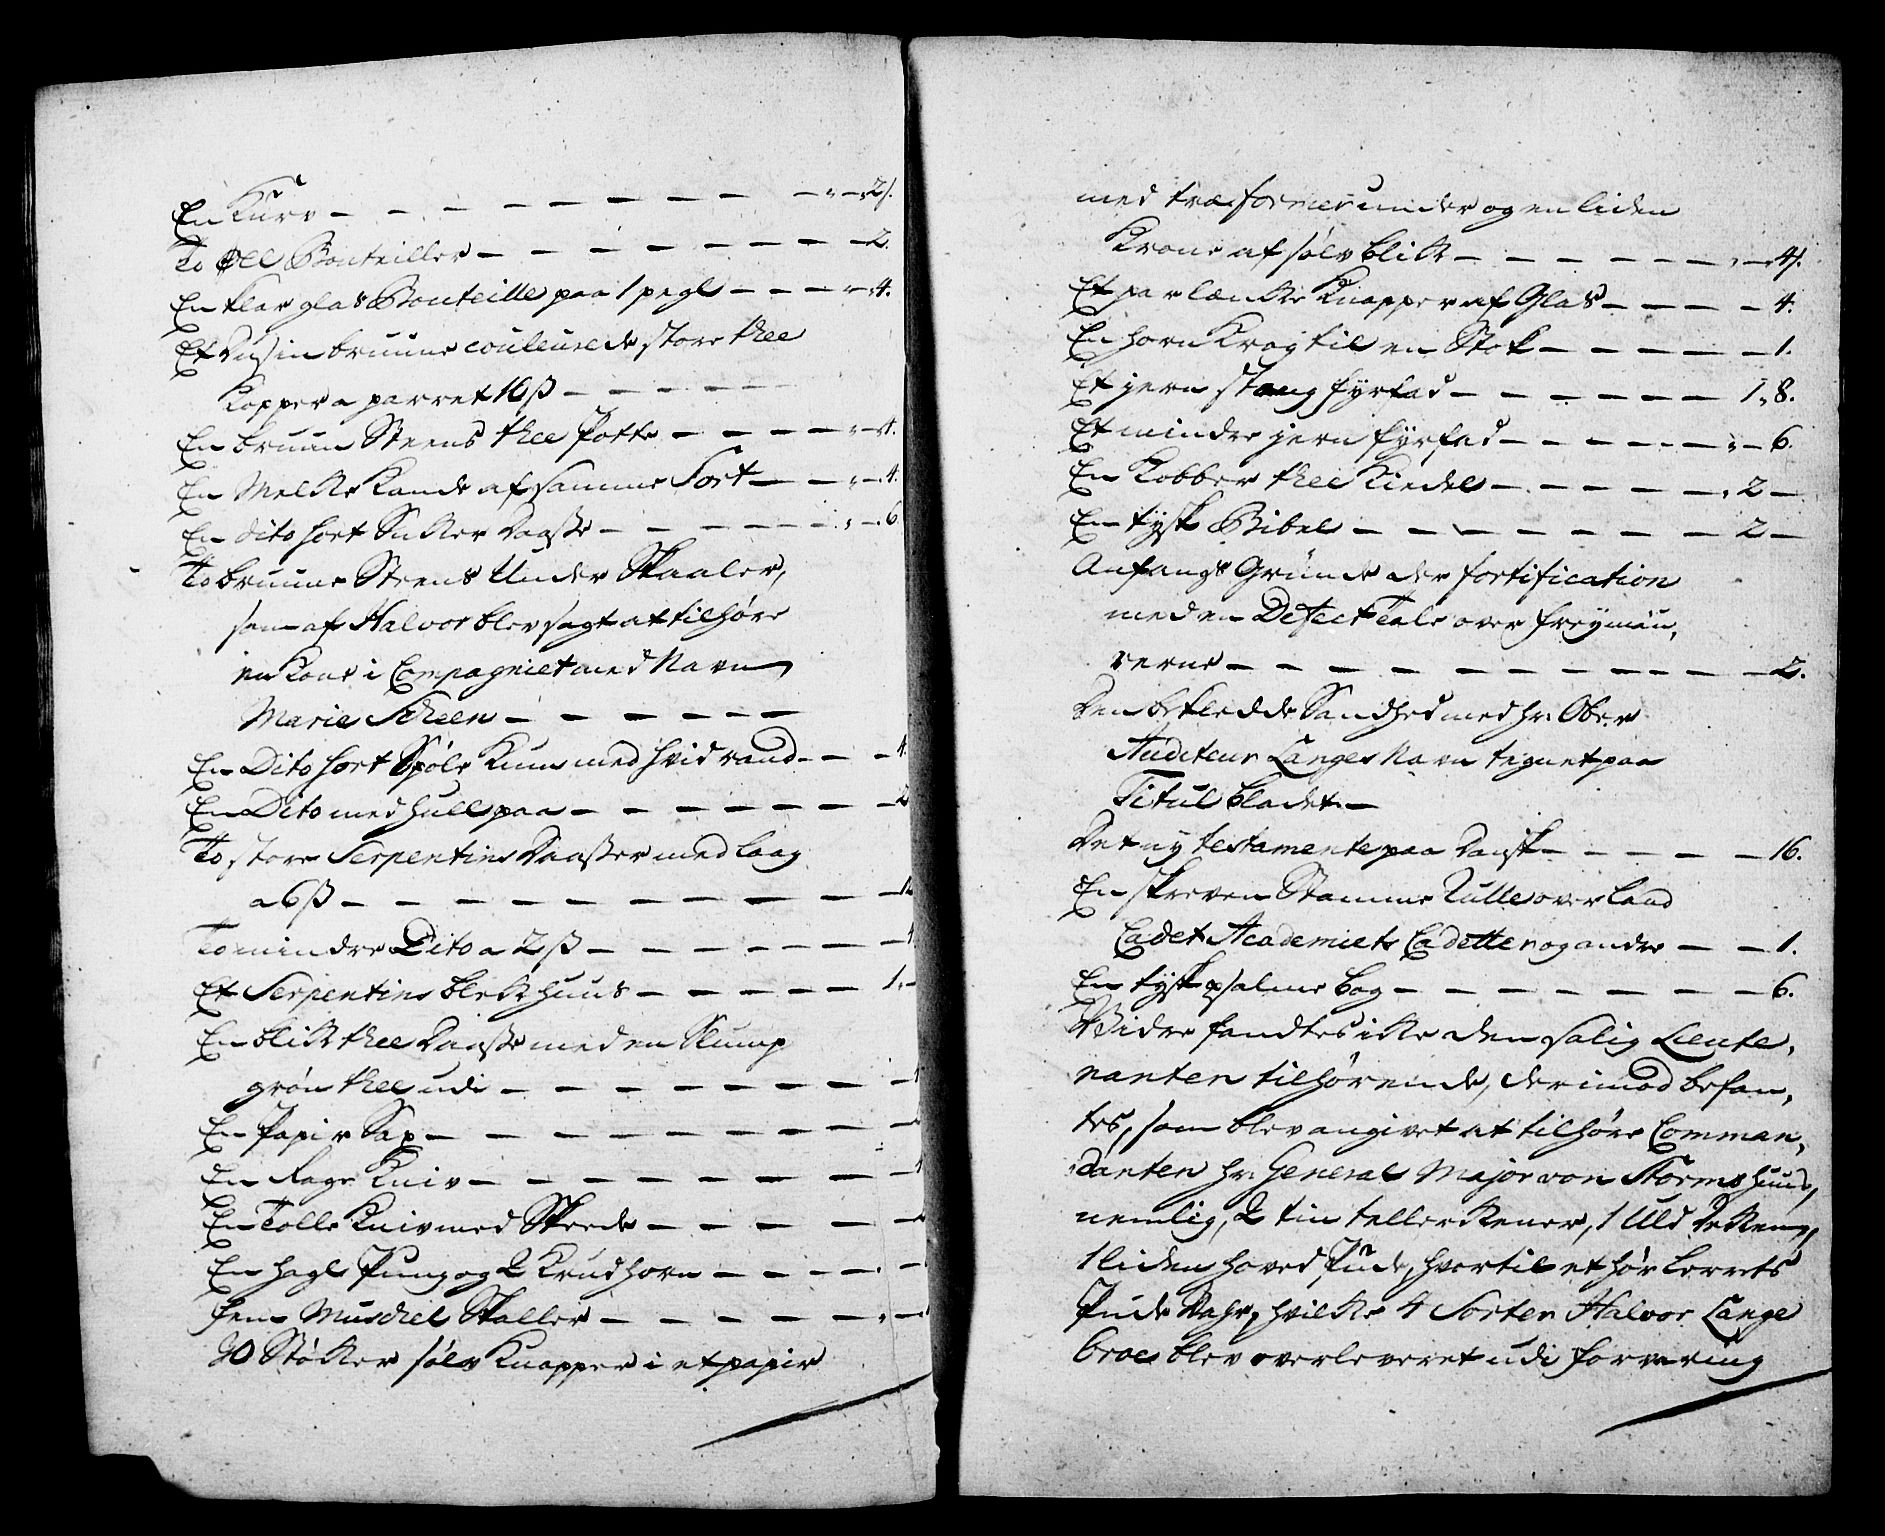 En Kurv — — — — — — — — „ — „ 2/.
To Øll Bouteiller — — — — — — — 2.
En klar glas Bouteille paa 1 pegl — — — „ — 4.
Et Dusin bruune couleurede store thee
Kopper a parret 16 ß — — — — —
En bruun Steens thee Potte — — — — „ — 4.
En Melke Kande af samme Sort — — — „ — 4.
En dito sort Sukker Daasse — — — — — „ — 6
To bruune Steens Under Skaaler,
som af Halvor blev sagt at tilhøre
en Kone i Compagniet med Navn
Marie Scheen — — — — — —
En Dito sort Spøle Kum med hvid rand — — 4.
En Dito med hull paa — — — — — — 2
To store Serpentins Daasser med laag
a 6 ß — — — — — — — — — 12
To mindre Dito a 2 ß — — — — — — 4
Et Serpentins blekhuus — — — — — 1. —
En blik thee Daasse med en Slump
grøn thee udi — — — — — — —
En Papir Sax — — — — — — — —
En Rage Kniv — — — — — — —
En Tolle Kniv med Skeede — — — — —
En hagl Pung og 2 Krudhorn — — — —
fem Muschel Skaller — — — — — „ —
20 Støkker sølv Knapper i et papir
med træ former under og en liden
Krone af sølv blik — — — — — — „ — 4/.
Et par lænke Knapper af Glas — — — — 4.
En horn Krog til en Stok — — — — — 1.
Et jern stang fyrfad — — — — — — 1 „ 8.
Et mindre jern fyrfad — — — — — „ — 6.
En Kobber thee Kiedel — — — — — „ 2 —
En tysk Bibel — — — — — — — 2 —
Anfangs Gründe der fortification
med en Defect Tale over freymäu,
rerne — — — — — — — — — — 2.
Den beklædde Sandhed med hr: Ober
Auditeur Langes Navn tegnet paa
Titul bladet —
Det ny testamente paa Dansk — — — — 16.
En skreven Stamme Rulle over land
Cadet Academiets Cadetter og andre — — 1.
En tysk psalme bog — — — — — — — 6.
Widre fandtes ikke den salig Lieute,
nanten tilhørende, derimod befan,
tes, som blev angivet at tilhøre Comman,
danten hr: General Major von Storms huus,
nemlig, 2 tin tellerkener, 1 Uld Dekken,
1 liden hoved Pude, hvortil et hør lerrets
Pude Vahr, hvilke 4 Sorter Halvor Lange
broe blev overleveret udi forvaring